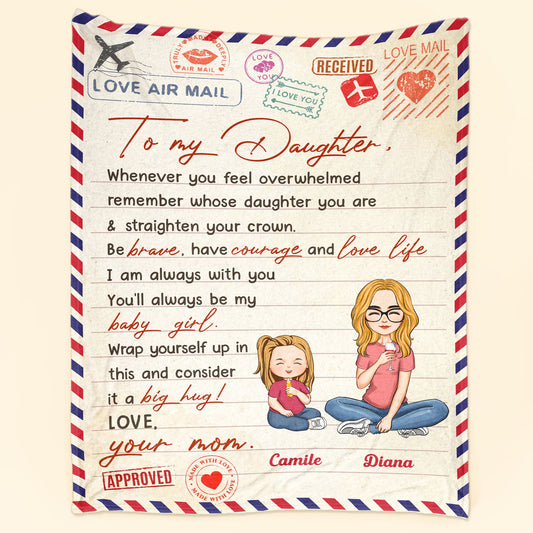 TRULY MADLY DEEPLY
AIR MAIL
LOVE YOU
RECEIVED
LOVE MAIL
LOVE AIR MAIL
I LOVE YOU
To my Daughter,
Whenever you feel overwhelmed
remember whose daughter you are
& straighten your crown.
Be brave, have courage and love life
I am always with you
You'll always be my
baby girl.
Wrap yourself up in
this and consider
it a big hug!
LOVE,
your mom.
Camile Diana
APPROVED
MADE WITH LOVE
MADE WITH LOVE